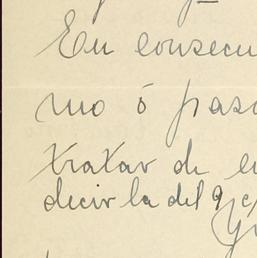 En consecu
mo ó pasa
tratar de en
decir la del 9 c